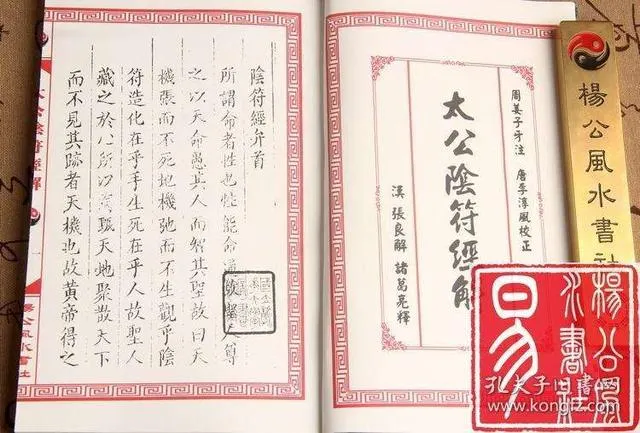 周姜子牙注 唐李淳風校正
太公陰符經解
漢 張良解 諸葛亮釋
陰符經弁首
所謂命者性也性能命通故聖人尊
之以天命愚其人而智其聖故曰天
機張而不死地機弛而不生觀乎陰
符造化在乎手生死在乎人故聖人
藏之於心所以 天地聚散天下
而不見其跡者天機也故黃帝得之
太公陰符經解
一
楊公風水書社
楊公風水書社
楊公風水書社
易
孔夫子旧书网
www.kongfz.com